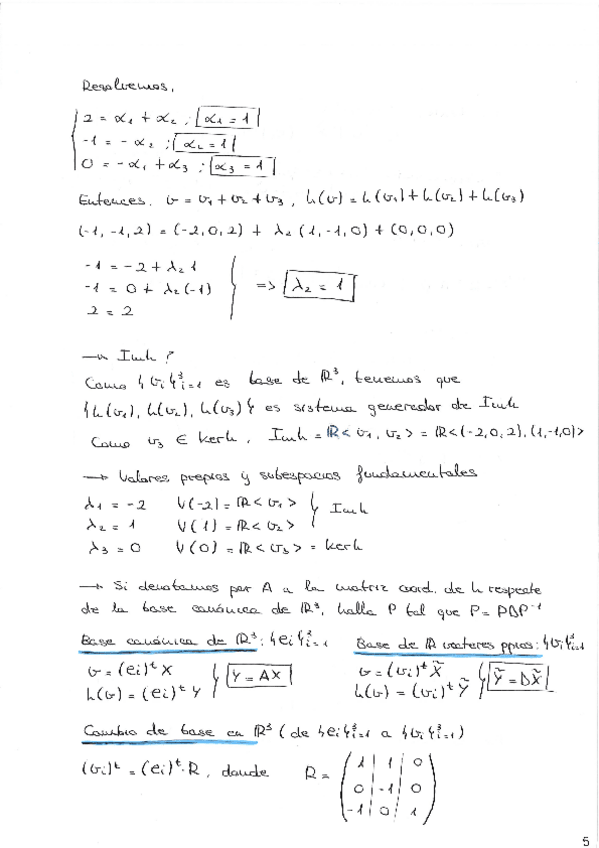 Resolvemos,
2 = α1 + α2 ; α1 = 1
-1 = - α2 ; α2 = 1
0 = - α1 + α3 ; α3 = 1
Entonces, v = v1 + v2 + v3 , h(v) = h(v1) + h(v2) + h(v3)
(-1, -1, 2) = (-2, 0, 2) + λ2 (1, -1, 0) + (0, 0, 0)
-1 = -2 + λ2 1
-1 = 0 + λ2 (-1) => λ2 = 1
2 = 2
→ Imh ?
Como {vi}³i=1 es base de ℝ³, tenemos que
{h(v1), h(v2), h(v3)} es sistema generador de Imh
Como v3 ∈ Kerh, Imh = ℝ< v1, v2 > = ℝ<(-2,0,2),(1,-1,0)>
→ Valores propios y subespacios fundamentales
λ1 = -2 V(-2) = ℝ< v1 >
λ2 = 1 V(1) = ℝ< v2 > } Imh
λ3 = 0 V(0) = ℝ< v3 > = Kerh
→ Si denotamos por A a la matriz coord. de h respecto
de la base canónica de ℝ³, halla P tal que P = PDP⁻¹
Base canónica de ℝ³: {ei}³i=1 Base de ℝ vectores ppios: {vi}³i=1
v = (ei)ᵗ X v = (vi)ᵗ X̃
h(v) = (ei)ᵗ Y } Y = AX h(v) = (vi)ᵗ Ỹ } Ỹ = DX̃
Cambio de base en ℝ³ (de {ei}³i=1 a {vi}³i=1)
(vi)ᵗ = (ei)ᵗ · R, donde R =
1 1 0
0 -1 0
-1 0 1
5